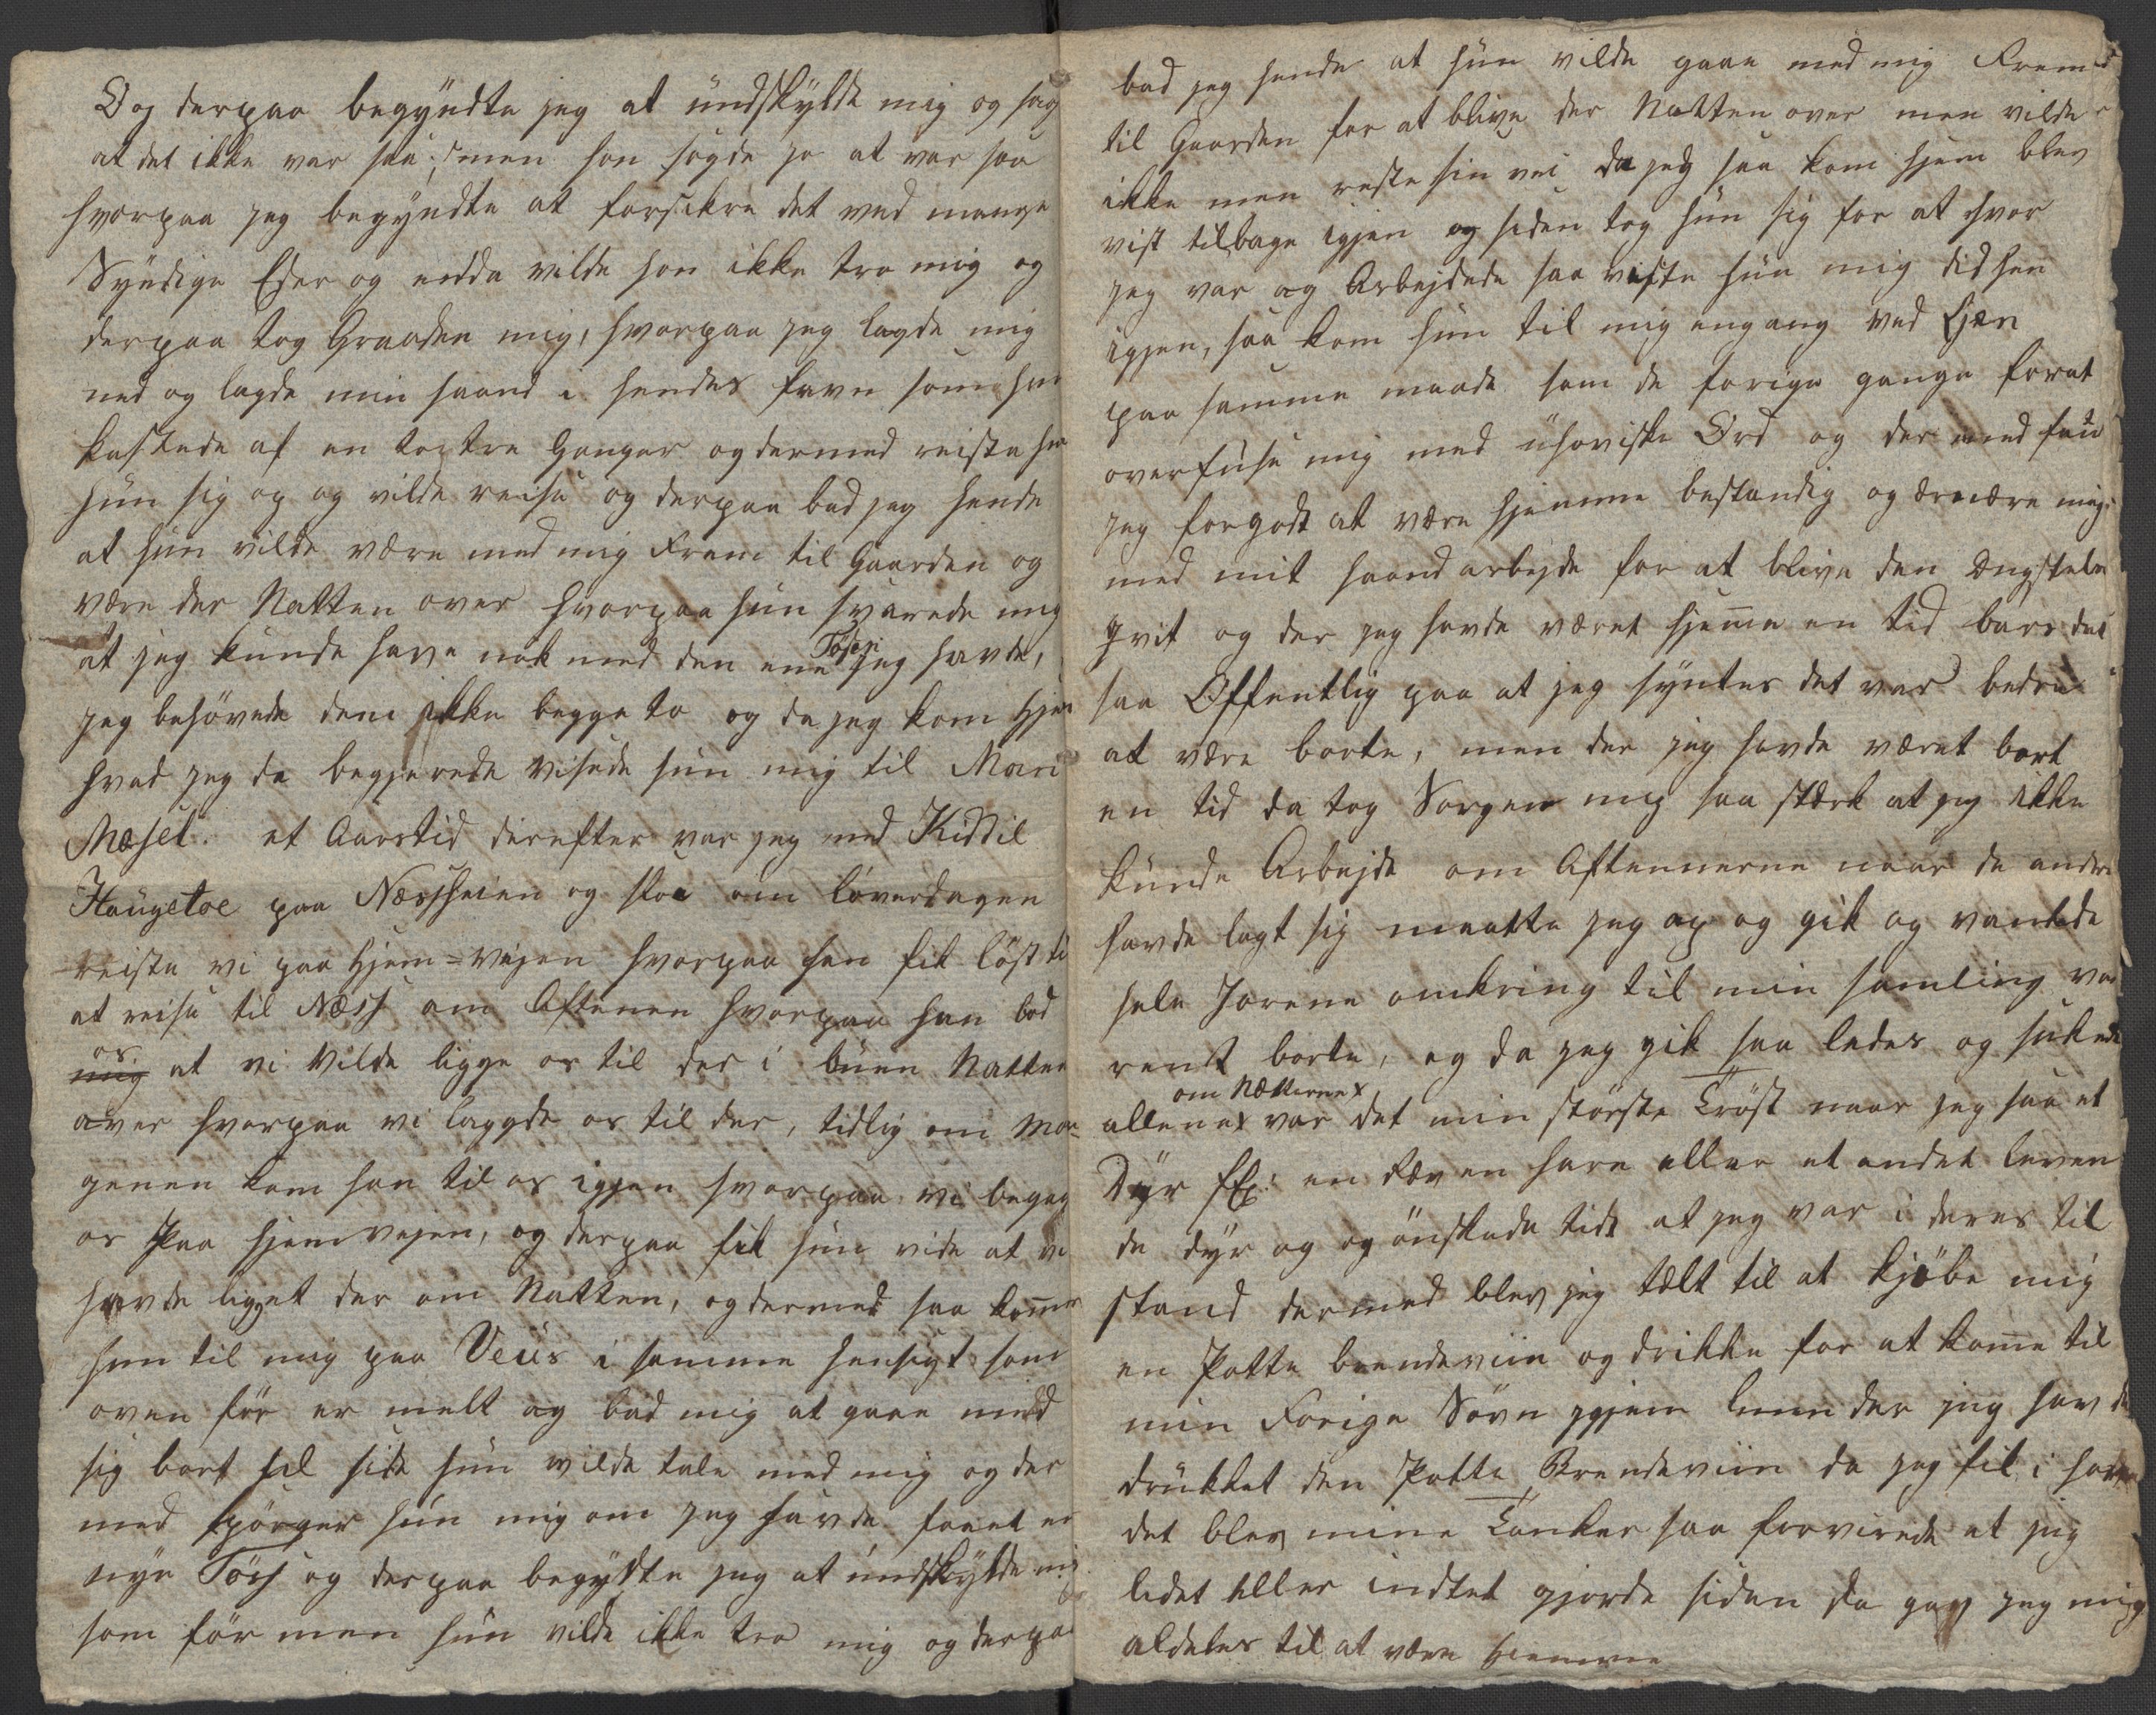 Og derpaa begyndte jeg at undskylde mig og sag
at det ikke var saa; men hon sagde jo at var saa
hvorpaa jeg begyndte at forsikre det med mange
Syndige Eder og endda vilde hon ikke tro mig og
derpaa tog Graaden mig, hvorpaa jeg lagde mig
ned og lagde min haand i hendes favn som hun
kastede af en to tre Ganger og dermed reiste hun
hun sig op og vilde reise og derpaa bad jeg hende
at hun vilde være med mig Frem til Gaarden og
være der Natten over hvorpaa hun svarede mig
at jeg kunde have nok med den ene Tösen jeg havde,
jeg behövede dem ikke begge to og da jeg kom hjem
hvad jeg da begjerede visede hun mig til Mari
Mæsel. et Aarstid derefter var jeg med Kittil
Haugetoe paa Næssheien og skar om löverdagen
reiste vi paa Hjem-vejen hvorpaa han fik löst ti
at reise til Næss om Aftenen hvorpaa han bad
mig os at vi Vilde ligge os til der i buen Natten
over hvorpaa vi laggde os til der, tidlig om Mor
genen kom han til os igjen hvorpaa vi begag
os Paa hjemvejen, og derpaa fik hun vide at vi
havde ligget der om Natten, og dermed saa kommer
hun til mig paa Veüs i samme hensigt som
oven för er melt og bad mig at gaae med
sig bort til side hun vilde tale med mig og der
med spörger hun mig om jeg havde faaet en
nye Tös og derpaa begyndte jeg at undskylde mig
som för men hun vilde ikke tro mig og derpaa
bad jeg hende at hun vilde gaae med mig Frem
til Gaarden for at blive der Natten over men vilde
ikke men reiste sin vei da jeg saa kom hjem blev
vist tilbage igjen og siden tog hun sig for at hvor
jeg var og Arbejdede saa viste hun mig did hen
igjen, saa kom hun til mig engang ved
paa samme maade som de forige gange forat
overfuse mig med uhoviske Ord og der med fan
jeg forgodt at være hjemme bestandig og ærnære mig
med mit haand arbejde for at blive den Ængstelse
qvit og der jeg havde været hjeme en tid bars det
saa Offentlig paa at jeg syntes det var bedre
at være borte, men der jeg havde været bort
en tid da tog Sorgen mig saa stærk at jeg ikke
kunde Arbejde om Aftennerne naar de andre
havde lagt sig maatte jeg op og gik og vankede
hele Jorene omkring til min samling var
rent borte, og da jeg gik saa ledes og sukede
allene x om Nætterne x var det min störste Tröst naar jeg saa et
Dyr f Ex: en Ræv en hare eller et andet leven
de dyr og og önskede tidt at jeg var i deres til
stand dermed blev jeg tælt til at kjöbe mig
en Potte brendeviin og drikke for at kome til
min Forige Sövn igjem lmen der jeg havde
drukket den Potte Brendeviin da jeg fik i
det blev mine Tanker saa forvirede at jeg
lidet eller indtet gjorde siden da gav jeg mig
aldeles til at være hiemme